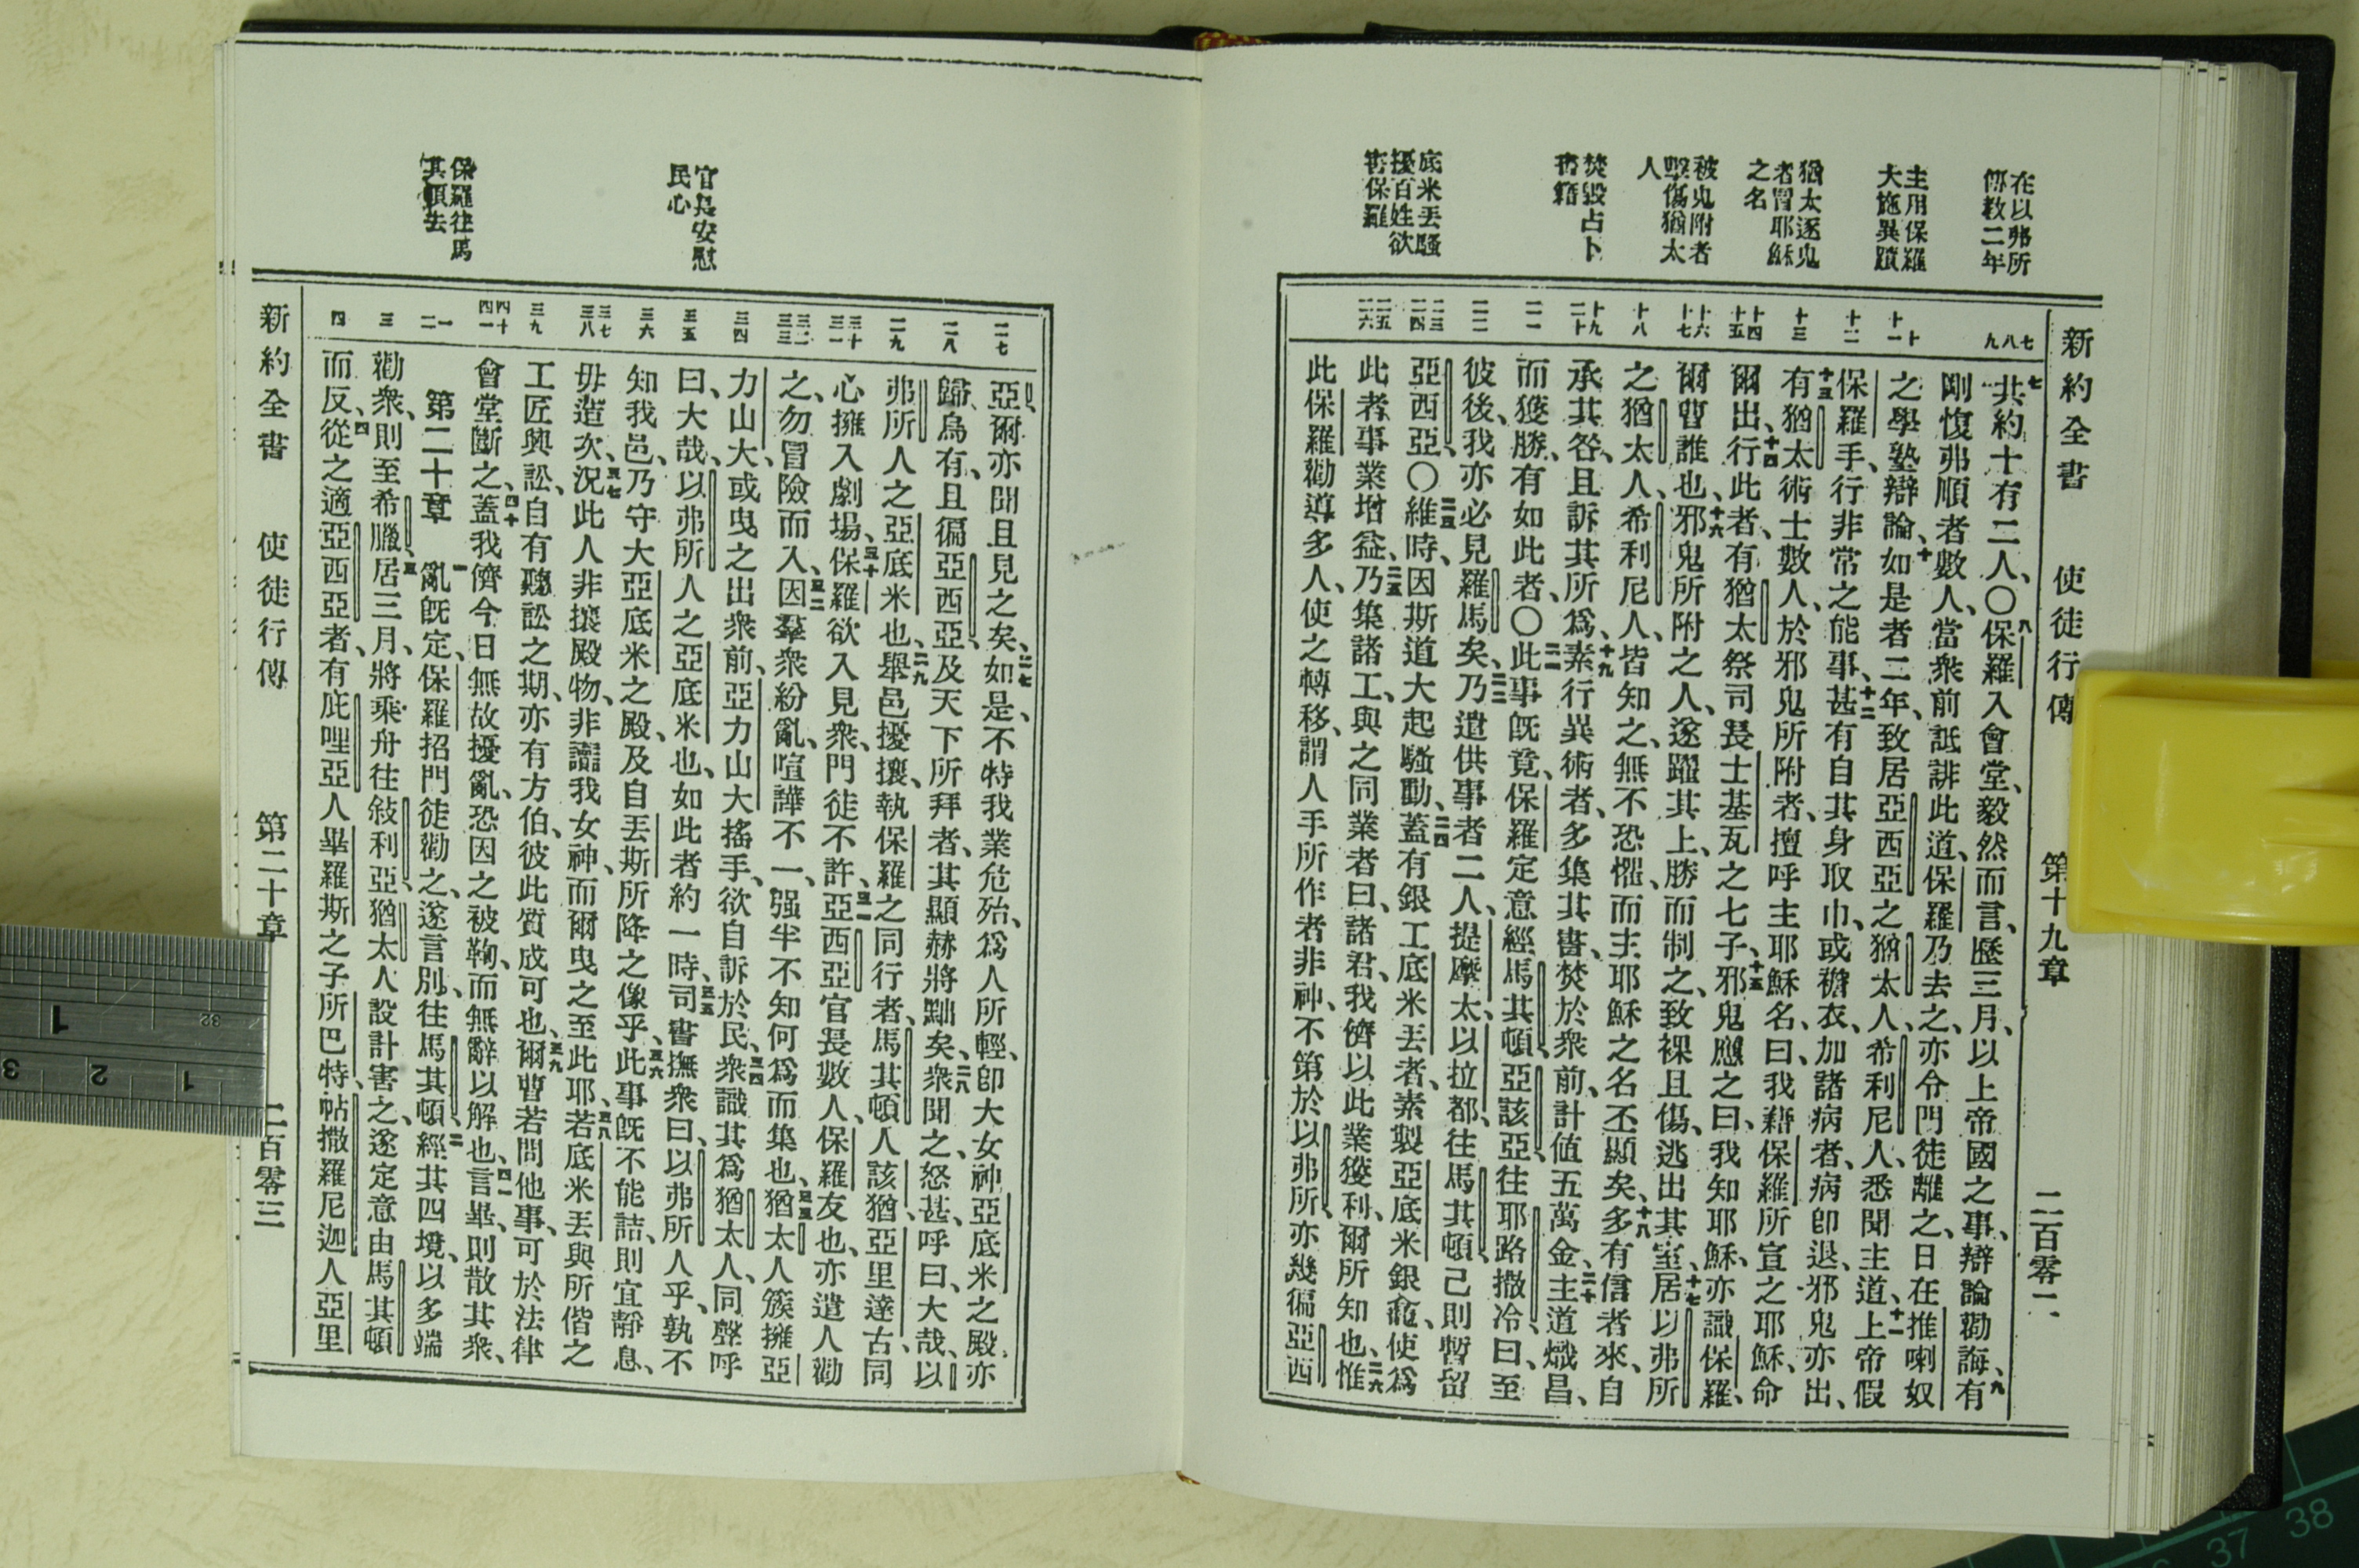 新約全書　使徒行傳　第十九章　二百零二
在以弗所
傳教二年
主用保羅
大施異蹟
猶太逐鬼
者冒耶穌
之名
被鬼附者
毆傷猶太
人
焚毀占卜
書籍
底米丟騷
擾百姓欲
害保羅
七
八
九
十
十一
十二
十三
十四
十五
十六
十七
十八
十九
二十
二一
二二
二三
二四
二五
二六
七共約十有二人、〇八保羅入會堂、毅然而言、歷三月、以上帝國之事、辯論勸誨、九有
剛愎弗順者數人、當衆前詆誹此道、保羅乃去之、亦令門徒離之、日在推喇奴
之學塾辯論、十如是者二年、致居亞西亞之猶太人、希利尼人、悉聞主道、十一上帝假
保羅手、行非常之能事、十二甚有自其身取巾、或襜衣、加諸病者、病卽退、邪鬼亦出、
十三有猶太術士數人、於邪鬼所附者、擅呼主耶穌名、曰、我藉保羅所宣之耶穌、命
爾出、十四行此者、有猶太祭司長士基瓦之七子、十五邪鬼應之曰、我知耶穌、亦識保羅、
爾曹誰也、十六邪鬼所附之人、遂躍其上、勝而制之、致裸且傷、逃出其室、十七居以弗所
之猶太人、希利尼人、皆知之、無不恐懼、而主耶穌之名丕顯矣、十八多有信者來、自
承其咎、且訴其所爲、十九素行異術者、多集其書、焚於衆前、計値五萬金、二十主道熾昌、
而獲勝、有如此者、〇二一此事旣竟、保羅定意、經馬其頓、亞該亞、往耶路撒冷、曰、至
彼後、我亦必見羅馬矣、二二乃遣供事者二人、提摩太、以拉都、往馬其頓、己則暫留
亞西亞、〇二三維時、因斯道大起騷動、二四蓋有銀工底米丟者、素製亞底米銀龕、使爲
此者、事業增益、二五乃集諸工、與之同業者曰、諸君、我儕以此業獲利、爾所知也、二六惟
此保羅勸導多人、使之轉移、謂人手所作者非神、不第於以弗所、亦幾徧亞西
官長安慰
民心
保羅往馬
其頓去
二七
二八
二九
三十
三一
三二
三三
三四
三五
三六
三七
三八
三九
四十
四一
一
二
三
四
亞、爾亦聞且見之矣、二七如是、不特我業危殆、爲人所輕、卽大女神亞底米之殿、亦
歸烏有、且徧亞西亞、及天下所拜者、其顯赫將黜矣、二八衆聞之、怒甚、呼曰、大哉、以
弗所人之亞底米也、二九舉邑擾攘、執保羅之同行者、馬其頓人該猶、亞里達古、同
心擁入劇場、三十保羅欲入見衆、門徒不許、三一亞西亞官長數人、保羅友也、亦遣人勸
之、勿冒險而入、三二因羣衆紛亂、喧譁不一、强半不知何爲而集也、三三猶太人簇擁亞
力山大、或曳之出衆前、亞力山大搖手、欲自訴於民、三四衆識其爲猶太人、同聲呼
曰、大哉、以弗所人之亞底米也、如此者約一時、三五司書撫衆曰、以弗所人乎、孰不
知我邑、乃守大亞底米之殿、及自丟斯所降之像乎、三六此事旣不能詰、則宜靜息、
毋造次、三七況此人非攘殿物、非讟我女神、而爾曳之至此耶、三八若底米丟與所偕之
工匠興訟、自有聽訟之期、亦有方伯、彼此質成可也、三九爾曹若問他事、可於法律
會堂斷之、四十蓋我儕今日無故擾亂、恐因之被鞫、而無辭以解也、四一言畢、則散其衆、
第二十章　一亂旣定、保羅招門徒勸之、遂言別、往馬其頓、二經其四境、以多端
勸衆、則至希臘、三居三月、將乘舟往敍利亞、猶太人設計害之、遂定意由馬其頓
而反、四從之適亞西亞者、有庇哩亞人畢羅斯之子所巴特、帖撒羅尼迦人亞里
新約全書　使徒行傳　第二十章　二百零三
1
2
3
32
37
38